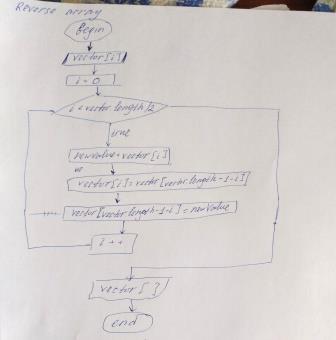 Reverse array
Begin
vector[i]
i = 0
i < vector.length/2
true
newValue=vector[i]
vector[i]=vector[vector.length-1-i]
vector[vector.length-1-i]=newValue
i++
vector[ ]
end